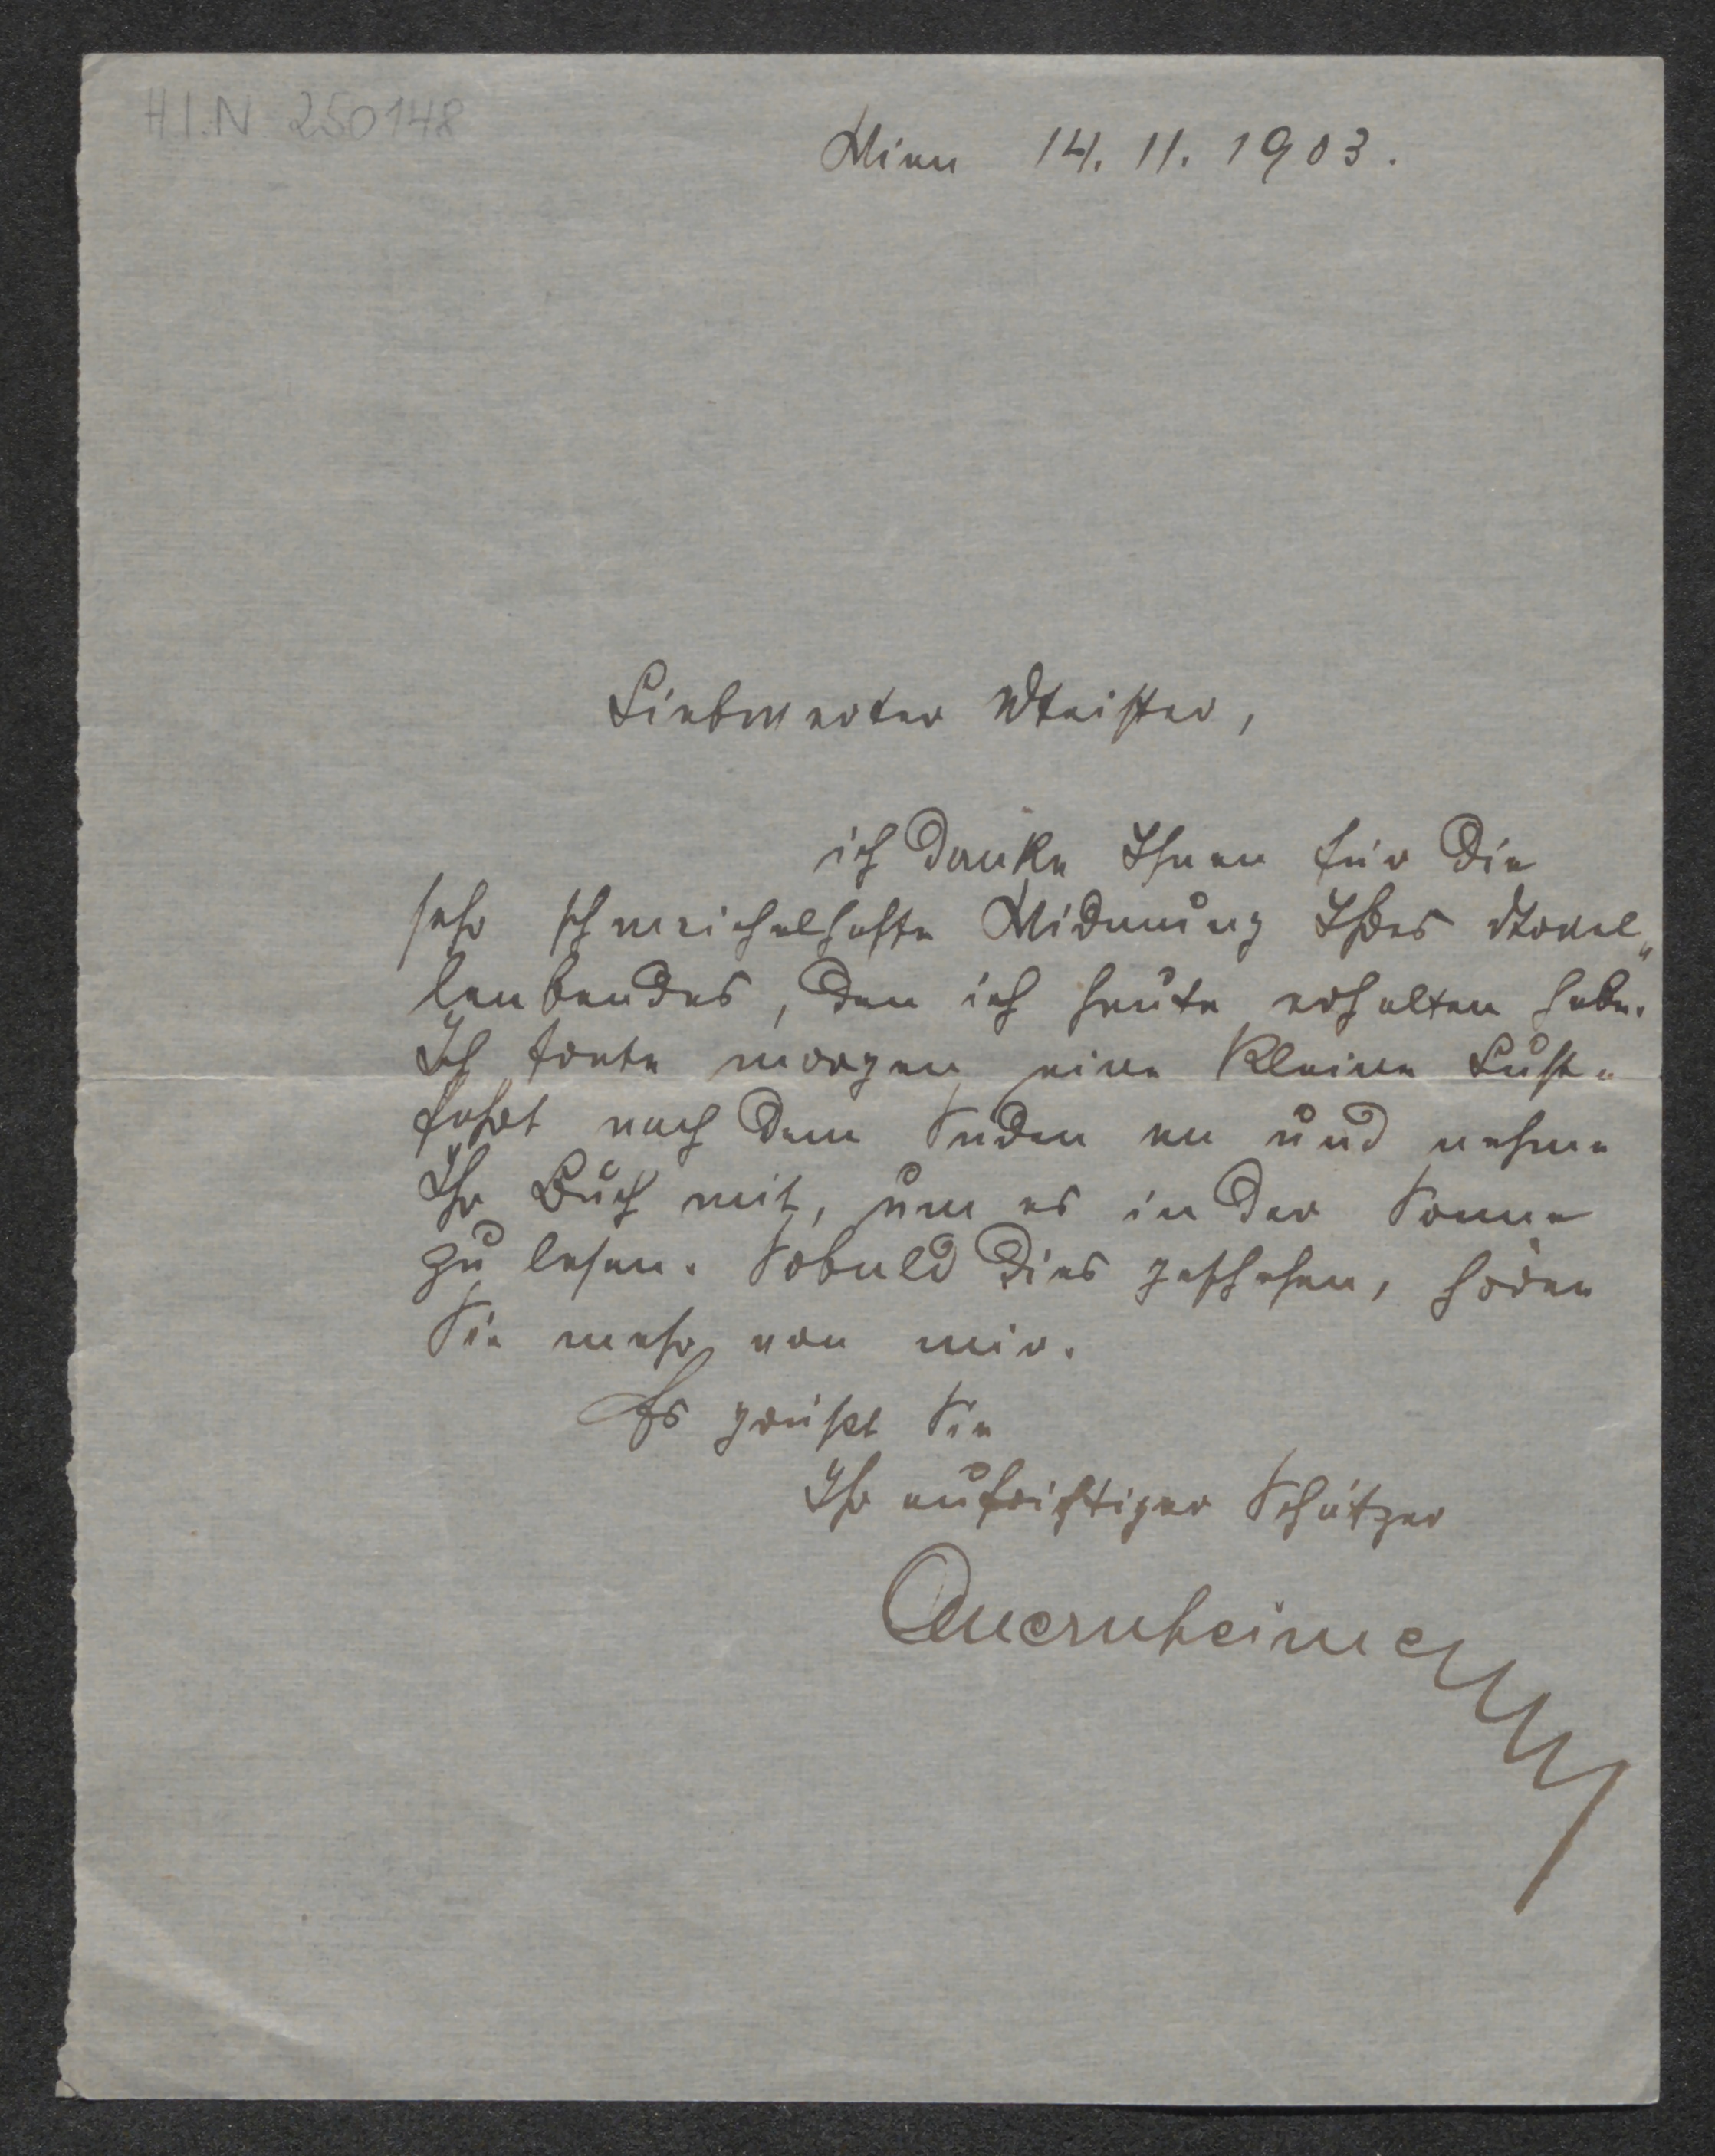 H.I.N. 250148
Wien 14. 11. 1903.
Liebwerter Meister,
ich danke Ihnen für die
sehr schmeichelhafte Widmung Ihres Novel„
lenbandes, den ich heute erhalten habe.
Ich trete morgen eine kleine Lust-
fahrt nach dem Süden an und nehme
Ihr Buch mit, um es in der Sonne
zu lesen. Sobald dies geschehen, hören
Sie mehr von mir.
Es grüßt Sie
Ihr aufrichtiger Schätzer
Auernheimer